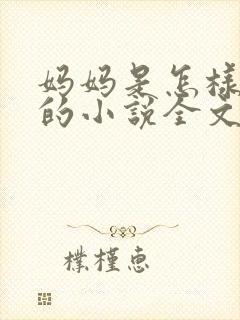 妈妈是怎样
的小说全文
樸槿惠